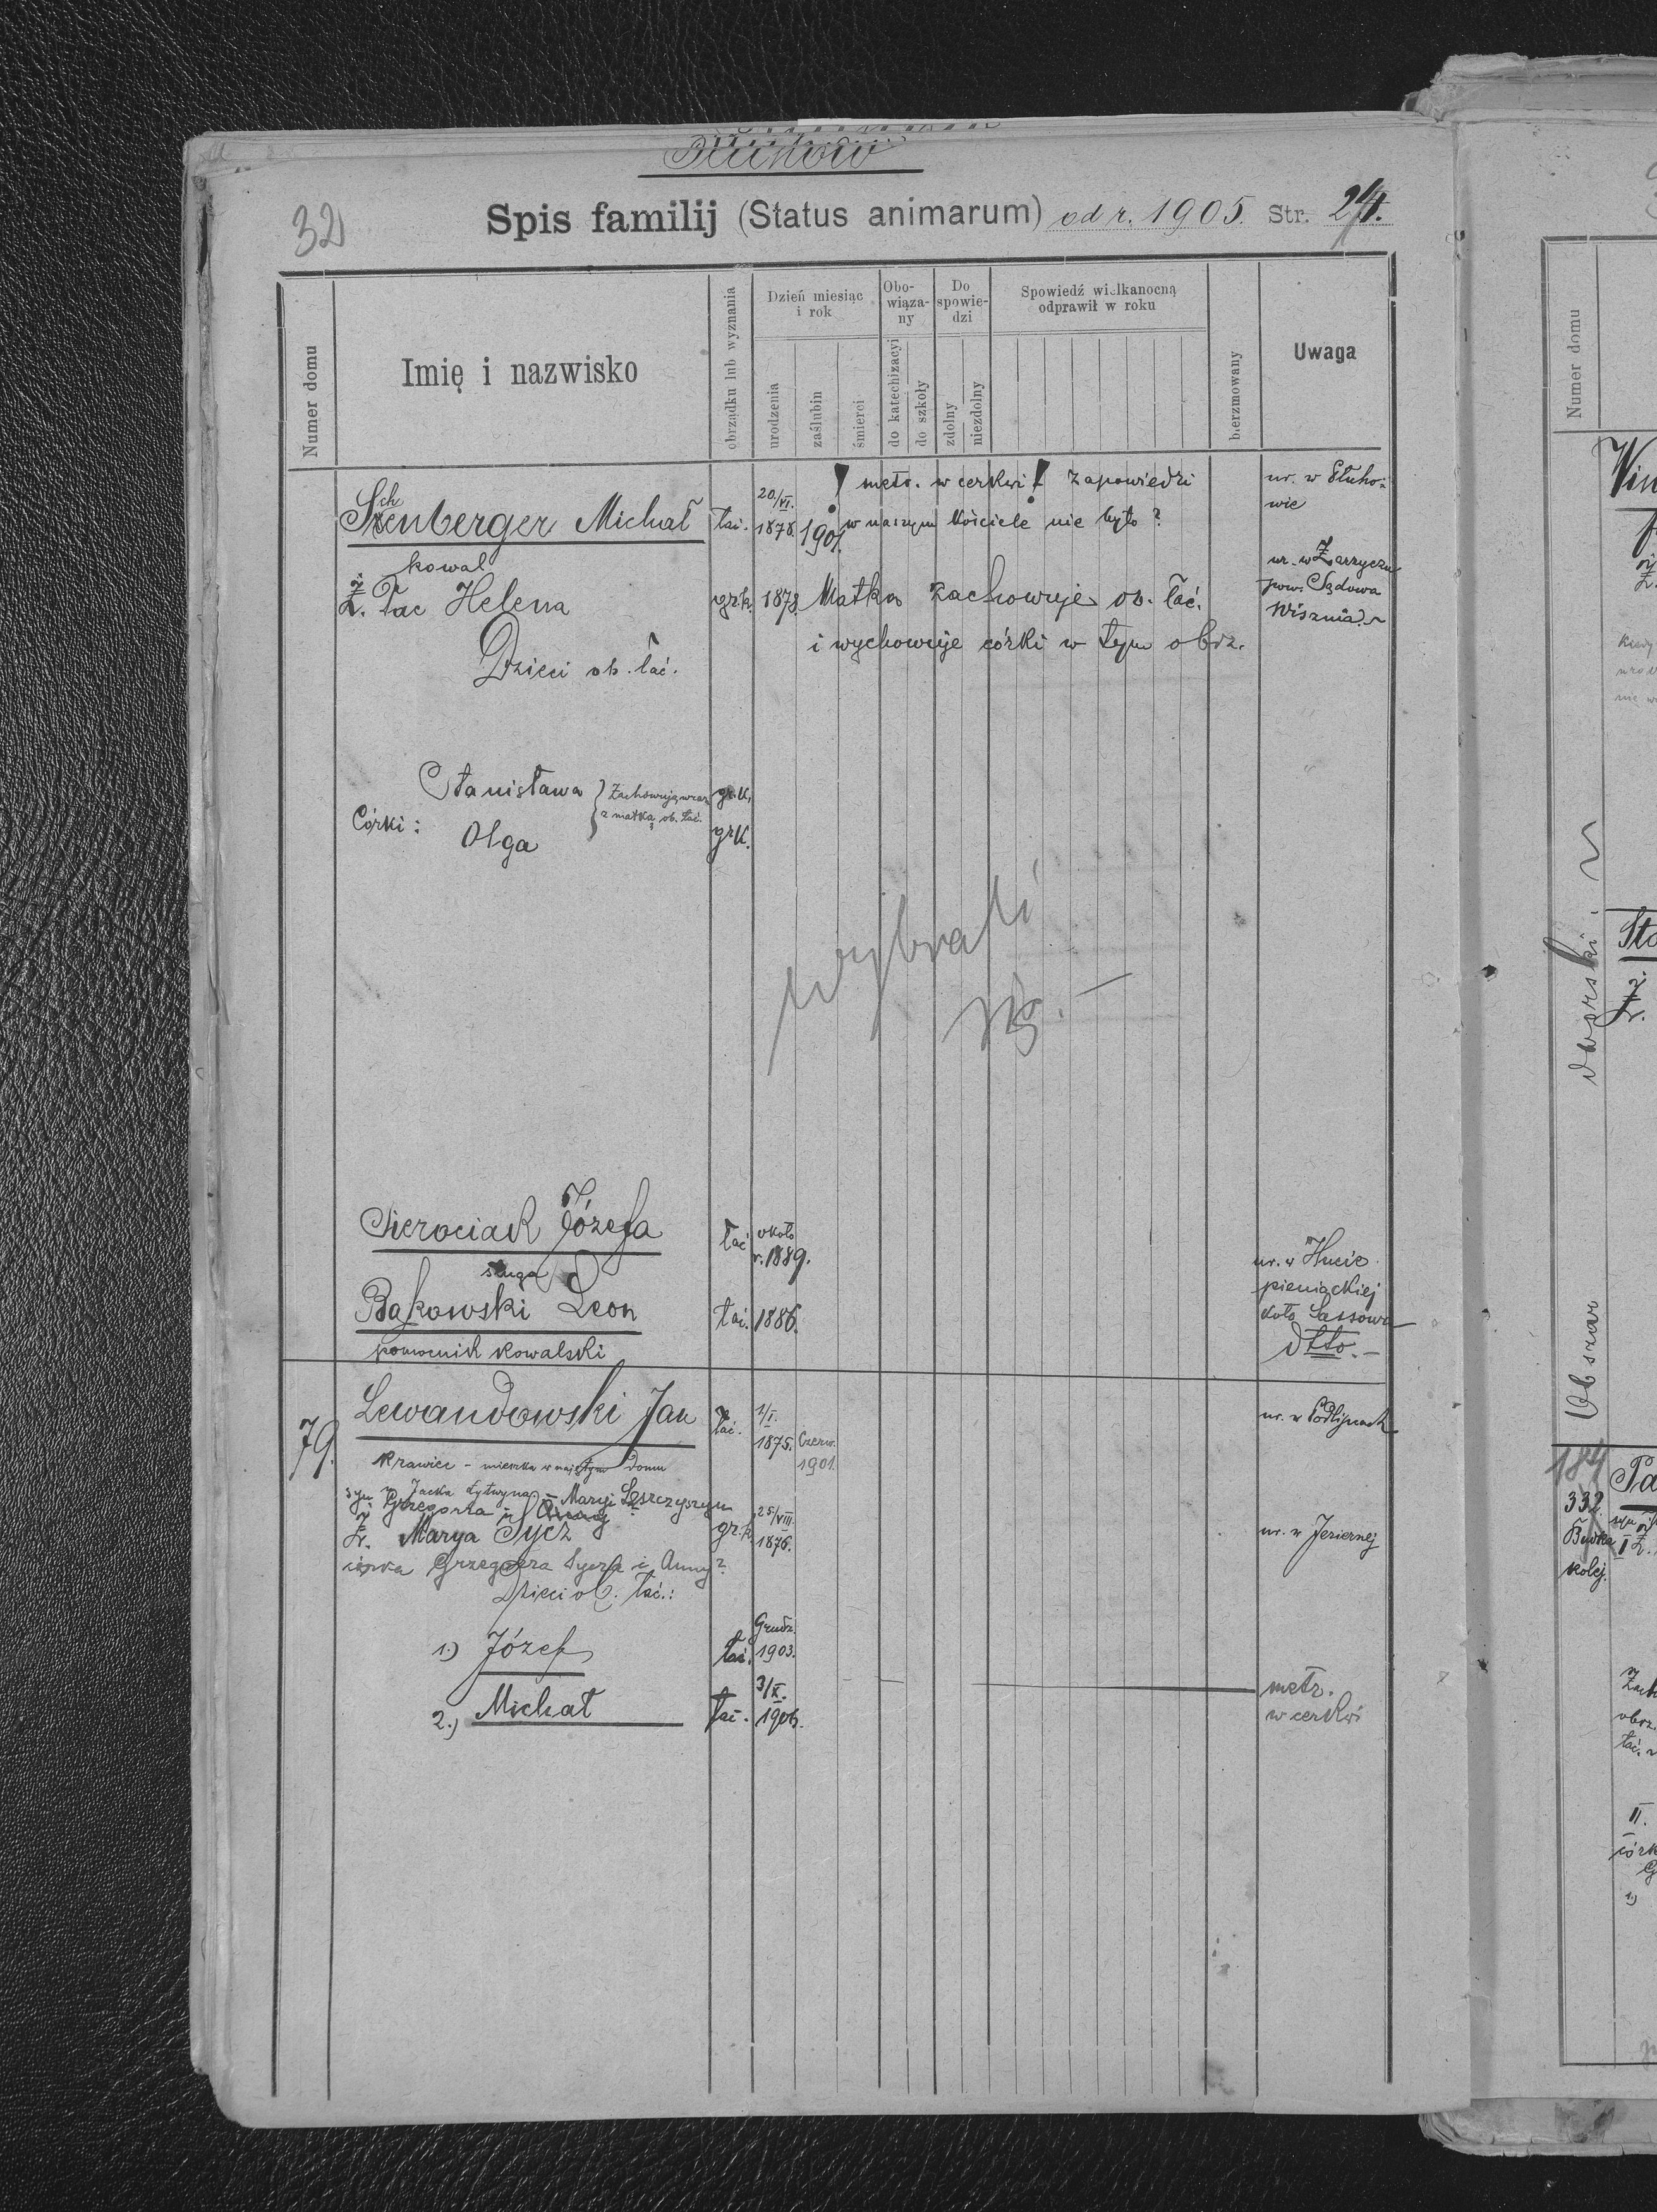 Słuhów
32
Spis familij (Status animarum) od r. 1905. Str. 24.
Numer domu
Imię i nazwisko
obrządku lub wyznania
Dzień miesiąc i rok
urodzenia
zaślubin
śmierci
Obo-wiąza-ny
do katechizacyi
do szkoły
Do spowie-dzi
zdolny
niezdolny
Spowiedź wielkanocną odprawił w roku
bierzmowany
Uwaga
Schenberger Michał łać. 20/VI. 1878. 1901. ! metr. w cerkwi! zapowiedzi
w naszym kościele nie było?
ur. w Słuho-
wie
kowal
Ż. Pac Helena gr.k. 1878. Matka zachowuje ob. łać.
i wychowuje córki w tym obrz.
ur. w Zarzyczu
pow. Sądowa
Wisznia.
Dzieci ob. łać.
Córki:
Stanisława gr.k.
Olga gr.k.
} Zachowują wraz
z matką ob. łać.
wybrali
się.-
Sierociak Józefa łać około r. 1889.
sługa
ur. w Hucie
pieniackiej
koło Sassowa
Bąkowski Leon łać. 1886. dtto.-
pomocnik kowalski
79. Lewandowski Jan łać. 1/I. 1875. Czerw. 1901. ur. w Podlipcach
Krawiec - mieszka w najętym domu
syn Jacka i Maryi Leszczyszyn
Grzegorza i Anny
Ż. Marya Sycz gr.k. 25/VIII. 1876. ur. w Jeziernej
córka Grzegorza Sycza i Anny?
Dzieci ob. łać.:
1.) Józef łać. Grudz. 1903.
2.) Michał łać. 3/X. 1906. metr.
w cerkwi
Numer domu
dworski.
Obszar
184
332
Budka
kolej.